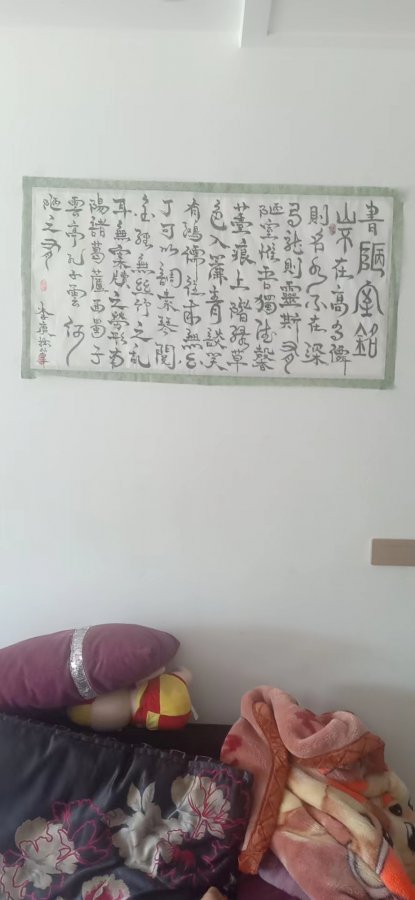 書陋室銘
山不在高有僊
則名水不在深
有龍則靈斯是
陋室惟吾德馨
苔痕上階綠草
色入簾青談笑
有鴻儒往來無白
丁可以調素琴閱
金經無絲竹之亂
耳無案牘之勞形南
陽諸葛廬西蜀子
雲亭孔子雲何
陋之有
李廣